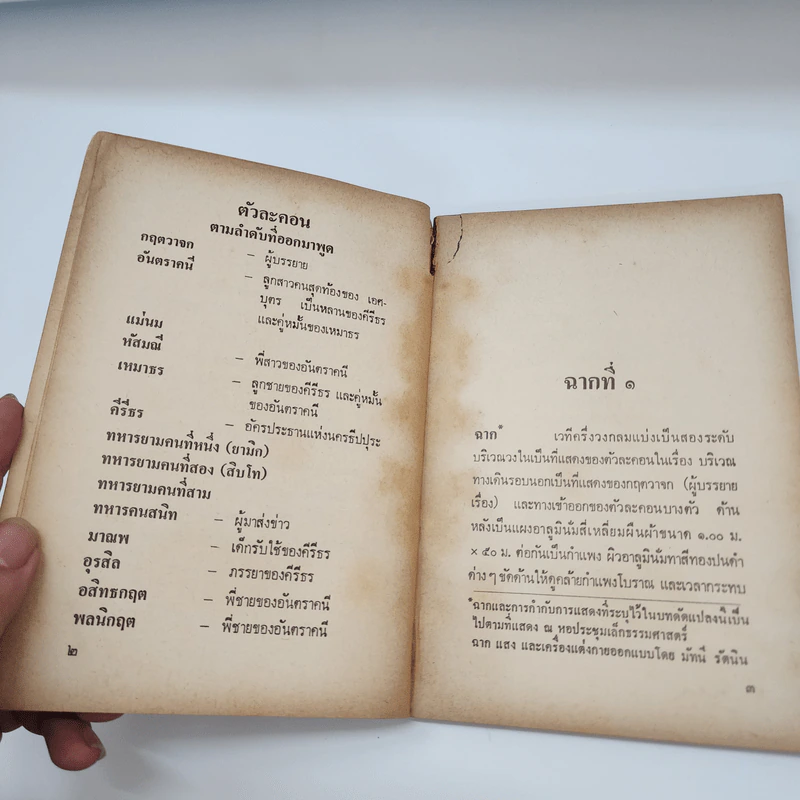 ตัวละคอน
ตามลำดับที่ออกมาพูด
กฤตวาจก – ผู้บรรยาย
อันตราคนี – ลูกสาวคนสุดท้องของ เอศ-
บุตร เป็นหลานของคีรีธร
และคู่หมั้นของเหมาธร
แม่นม
หัสมณี – พี่สาวของอันตราคนี
เหมาธร – ลูกชายของคีรีธร และคู่หมั้น
ของอันตราคนี
คีรีธร – อัครประธานแห่งนครธีปปุระ
ทหารยามคนที่หนึ่ง (ยามิก)
ทหารยามคนที่สอง (สิบโท)
ทหารยามคนที่สาม
ทหารคนสนิท – ผู้มาส่งข่าว
มาณพ – เด็กรับใช้ของคีรีธร
อุรสิล – ภรรยาของคีรีธร
อสิทธกฤต – พี่ชายของอันตราคนี
พลนิกฤต – พี่ชายของอันตราคนี
๒
ฉากที่ ๑
ฉาก* เวทีครึ่งวงกลมแบ่งเป็นสองระดับ
บริเวณวงในเป็นที่แสดงของตัวละคอนในเรื่อง บริเวณ
ทางเดินรอบนอกเป็นที่แสดงของกฤตวาจก (ผู้บรรยาย
เรื่อง) และทางเข้าออกของตัวละคอนบางตัว ด้าน
หลังเป็นแผงอาลูมิเนั่มสี่เหลี่ยมผืนผ้าขนาด ๑.๐๐ ม.
× ๕๐ ม. ต่อกันเป็นกำแพง ผิวอาลูมิเนั่มทาสีทองปนดำ
ต่างๆ ขัดด้านให้ดูคล้ายกำแพงโบราณ และเวลากระทบ
*ฉากและการกำกับการแสดงที่ระบุไว้ในบทดัดแปลงนี้เป็น
ไปตามที่แสดง ณ หอประชุมเล็กธรรมศาสตร์
ฉาก แสง และเครื่องแต่งกายออกแบบโดย มัทนี รัตนิน
๓